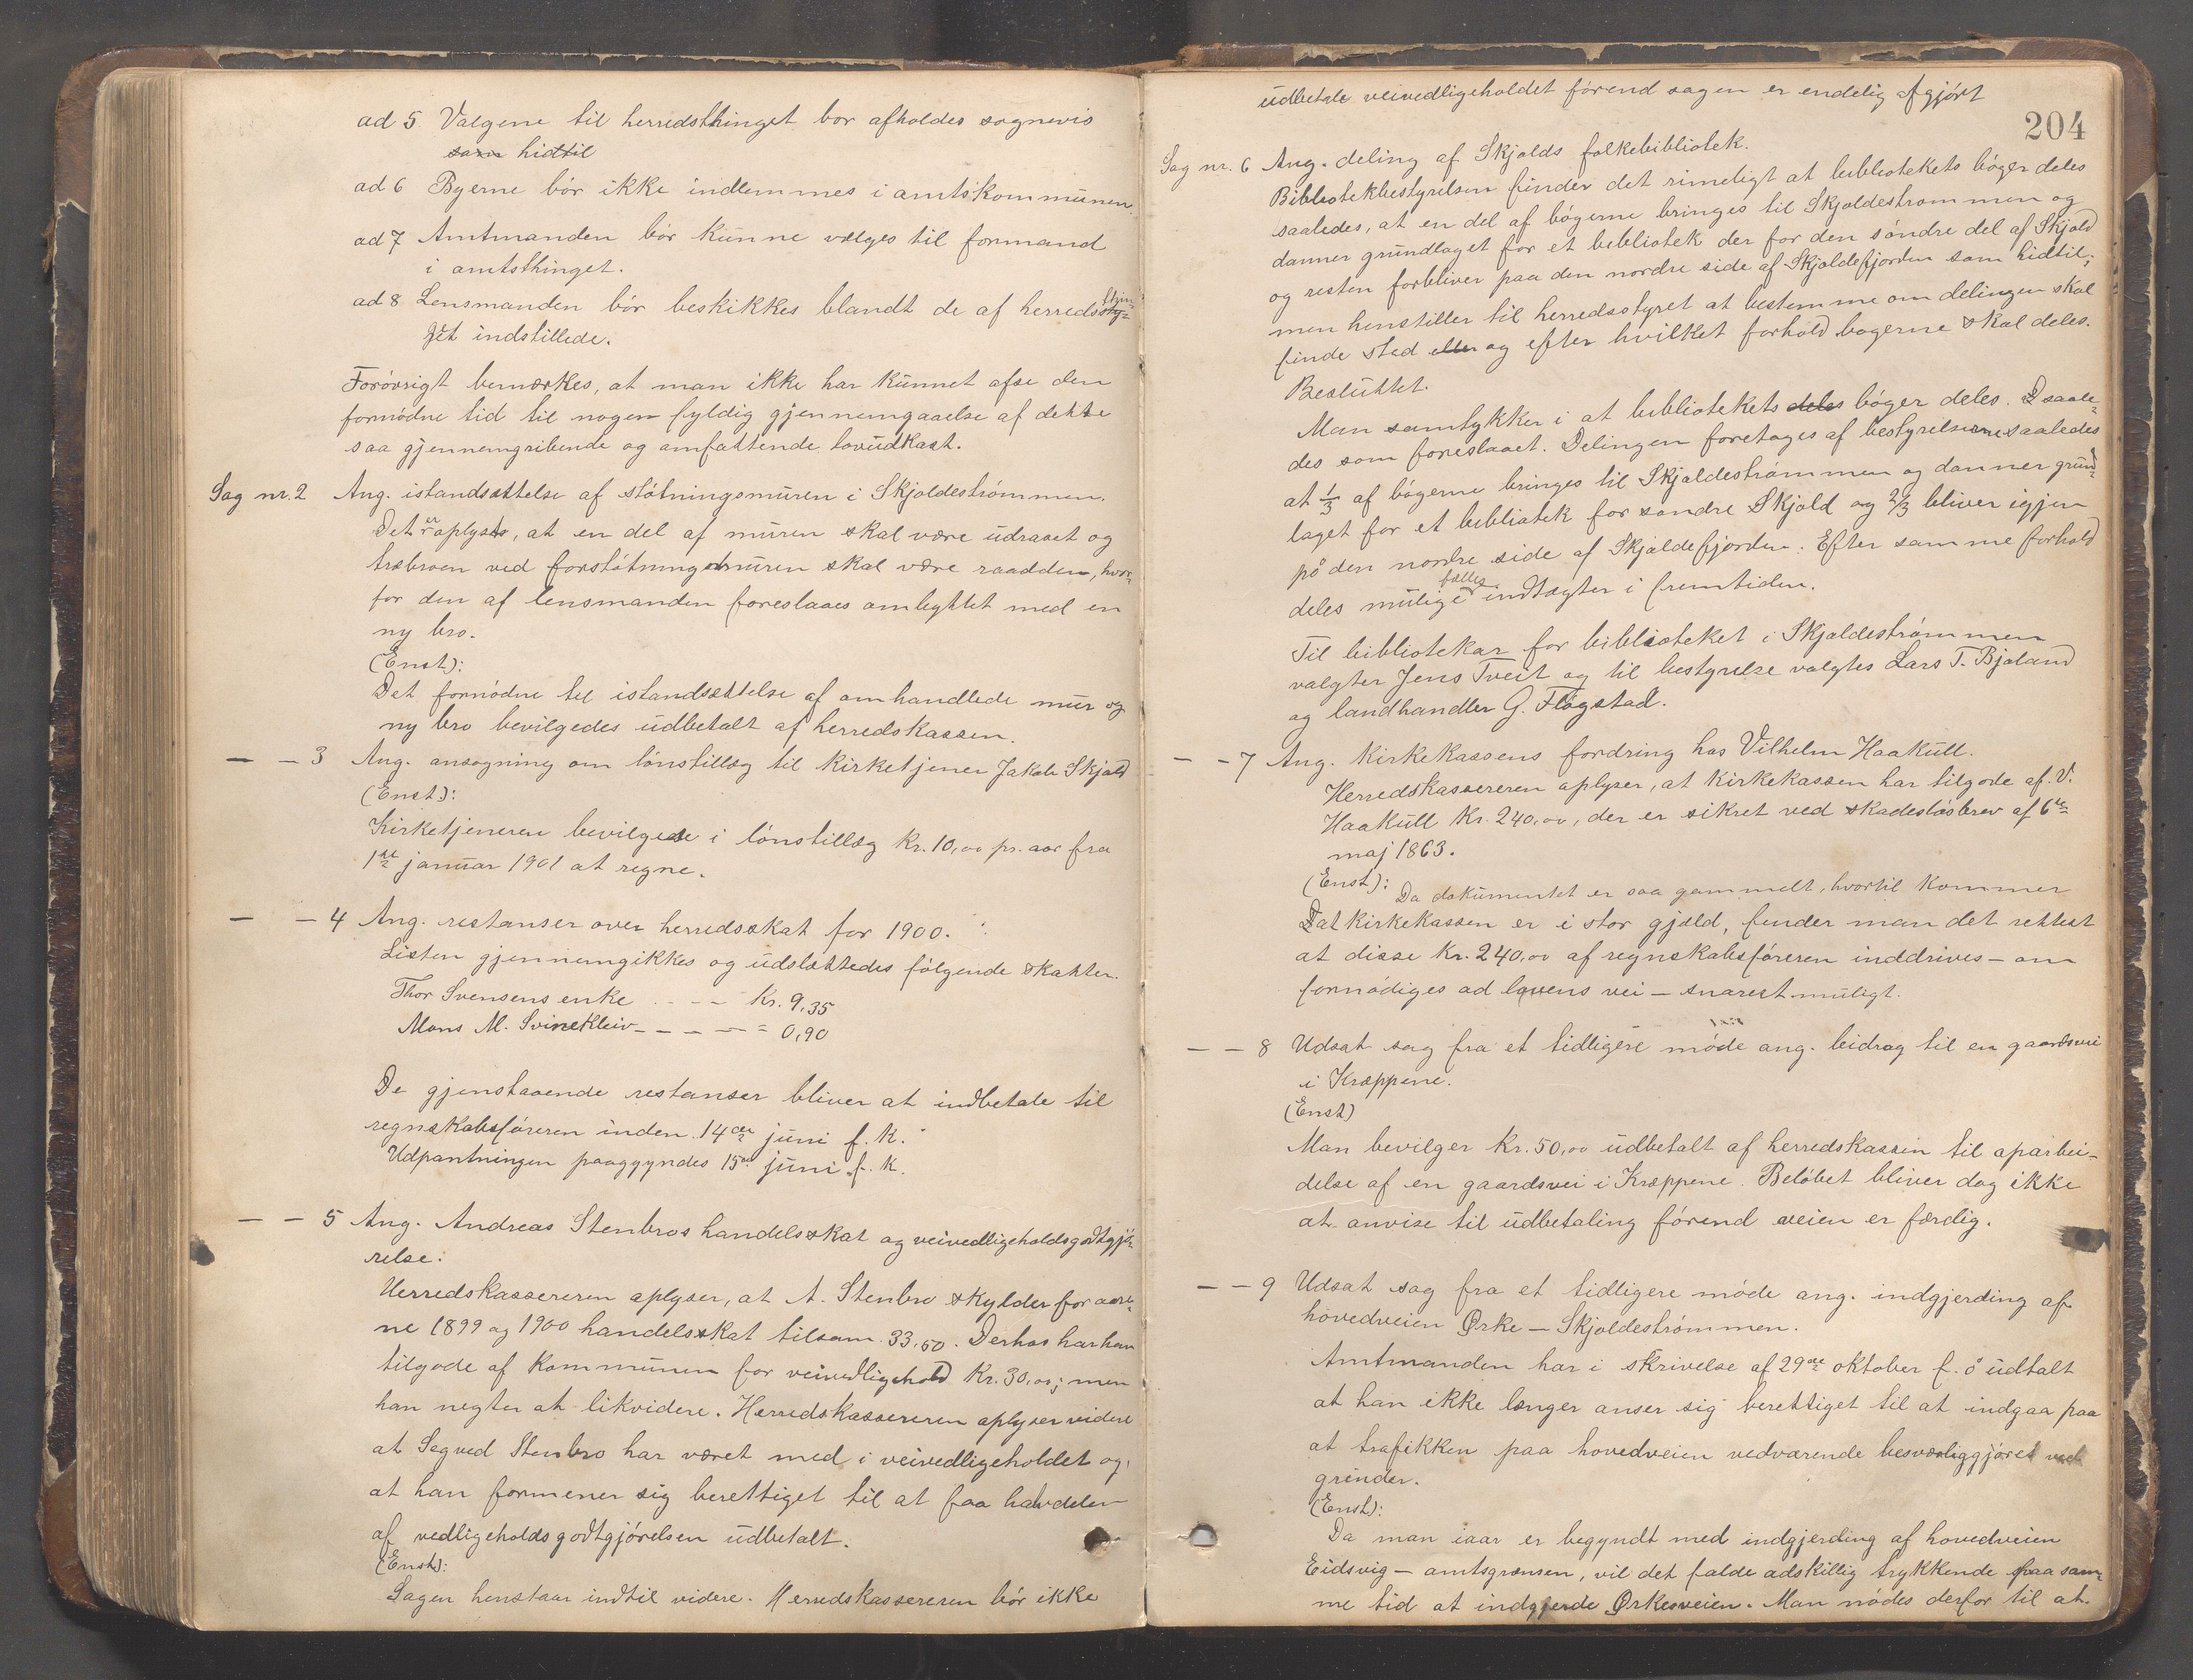 ad 5 Valgene til herredsthinget bør afholdes sognevis
som hidtil
ad 6 Byerne bør ikke indlemmes i amtskommunen.
ad 7 Amtmanden bør kunne vælges til formand
i amtsthinget.
ad 8 Lensmanden bør beskikkes blandt de af herredsthin-
get indstillede.
Forøvrigt bemærkes, at man ikke har kunnet afse den
fornødne tid til nogen fyldig gjennemgaaelse af dette
saa gjennemgribende og omfattende lovudkast.
Sag nr. 2 Ang. istandsættelse af støtningsmuren i Skjoldestrømmen.
Det er oplyst, at en del af muren skal være udraset og
træbroen ved forstøtningsmuren skal være raadden, hvor-
for den af lensmanden foreslaaes ombyttet med en
ny bro.
(Enst):
Det fornødne til istandsættelse af omhandlede mur og
ny bro bevilgedes udbetalt af herredskassen.
— — 3 Ang. ansøgning om lønstillæg til kirketjener Jakob Skjold
(Enst):
Kirketjeneren bevilgede i lønstillæg kr. 10,00 pr. aar fra
1ste januar 1901 at regne.
— — 4 Ang. restanser over herredsskat for 1900.
Listen gjennemgikkes og udslættedes følgende skatter.
Thor Svensens enke . - - - Kr. 9,35
Mons M. Svinekleiv - - - - - " 0,90
De gjenstaaende restanser bliver at indbetale til
regnskabsføreren inden 14de juni f. k.
Udpantningen paagyndes 15de juni f. k.
— — 5 Ang. Andreas Stenbros handelsskat og veivedligeholdsgodtgjø-
relse.
Herredskassereren oplyser, at A. Stenbro skylder for aare-
ne 1899 og 1900 handelsskat tilsam. 33,60. Derhos har han
tilgode af kommunen for veivedligehold Kr. 30,00; men
han negter at likvidere. Herredskassereren oplyser videre
at Segved Stenbro har været med i veivedligeholdet og
at han formener sig berettiget til at faa halvdelen
af vedligeholdsgodtgjørelsen udbetalt.
(Enst):
Sagen henstaar indtil videre. Herredskassereren bør ikke
udbetale veivedligeholdet førend sagen er endelig afgjort
204
Sag nr. 6 Ang. deling af Skjolds folkebibliotek.
Bibliotekbestyrelsen finder det rimeligt at bibliotekets bøger deles
saaledes, at en del af bøgerne bringes til Skjoldestrømmen og
danner grundlaget for et bibliotek der for den søndre del af Skjold
og resten forbliver paa den nordre side af Skjoldefjorden som hidtil;
men henstiller til herredsstyret at bestemme om delingen skal
finde sted eller og efter hvilket forhold bøgerne skal deles.
Besluttet.
Man samtykker i at bibliotekets deles bøger deles. saale-
des som foreslaaet. Delingen foretages af bestyrelserne saaledes
at 1/3 af bøgerne bringes til Skjoldestrømmen og danner grund-
laget for et bibliotek for søndre Skjold og 2/3 bliver igjen
på den nordre side af Skjoldefjorden. Efter samme forhold
deles mulige fælles indtægter i fremtiden.
Til bibliotekar for biblioteket i Skjoldestrømmen
valgtes Jens Tveit og til bestyrelse valgtes Lars T. Bjoland
og landhandler G. Fløgstad.
— — 7 Ang. kirkekassens fordring hos Vilhelm Haakull.
Herredskassereren oplyser, at kirkekassen har tilgode af V.
Haakull Kr. 240,00, der er sikret ved skadesløsbrev af 6te
maj 1863.
(Enst): Da dokumentet er saa gammelt, hvortil kommer
at kirkekassen er i stor gjæld, finder man det rettest
at disse Kr. 240,00 af regnskabsføreren inddrives — om
fornødiges ad lovens vei — snarest muligt.
— — 8 Udsat sag fra et tidligere møde ang. bidrag til en gaardsvei
i Kræppene.
(Enst)
Man bevilger Kr. 50,00 udbetalt af herredskassen til oparbei-
delse af en gaardsvei i Kræppene. Beløbet bliver dog ikke
at anvise til udbetaling førend veien er færdig.
— — 9 Udsat sag fra et tidligere møde ang. indgjerding af
hovedveien Ørke — Skjoldestrømmen.
Amtmanden har i skrivelse af 29de oktober f. å udtalt
at han ikke længer anser sig berettiget til at indgaa paa
at trafikken paa hovedveien vedværende besværliggjøres ved
grinder.
(Enst):
Da man iaar er begyndt med indgjerding af hovedveien
Eidsvig — amtsgrænsen, vil det falde adskillig trykkende paa sam-
me tid at indgjerde Ørkesveien. Man nødes derfor til at